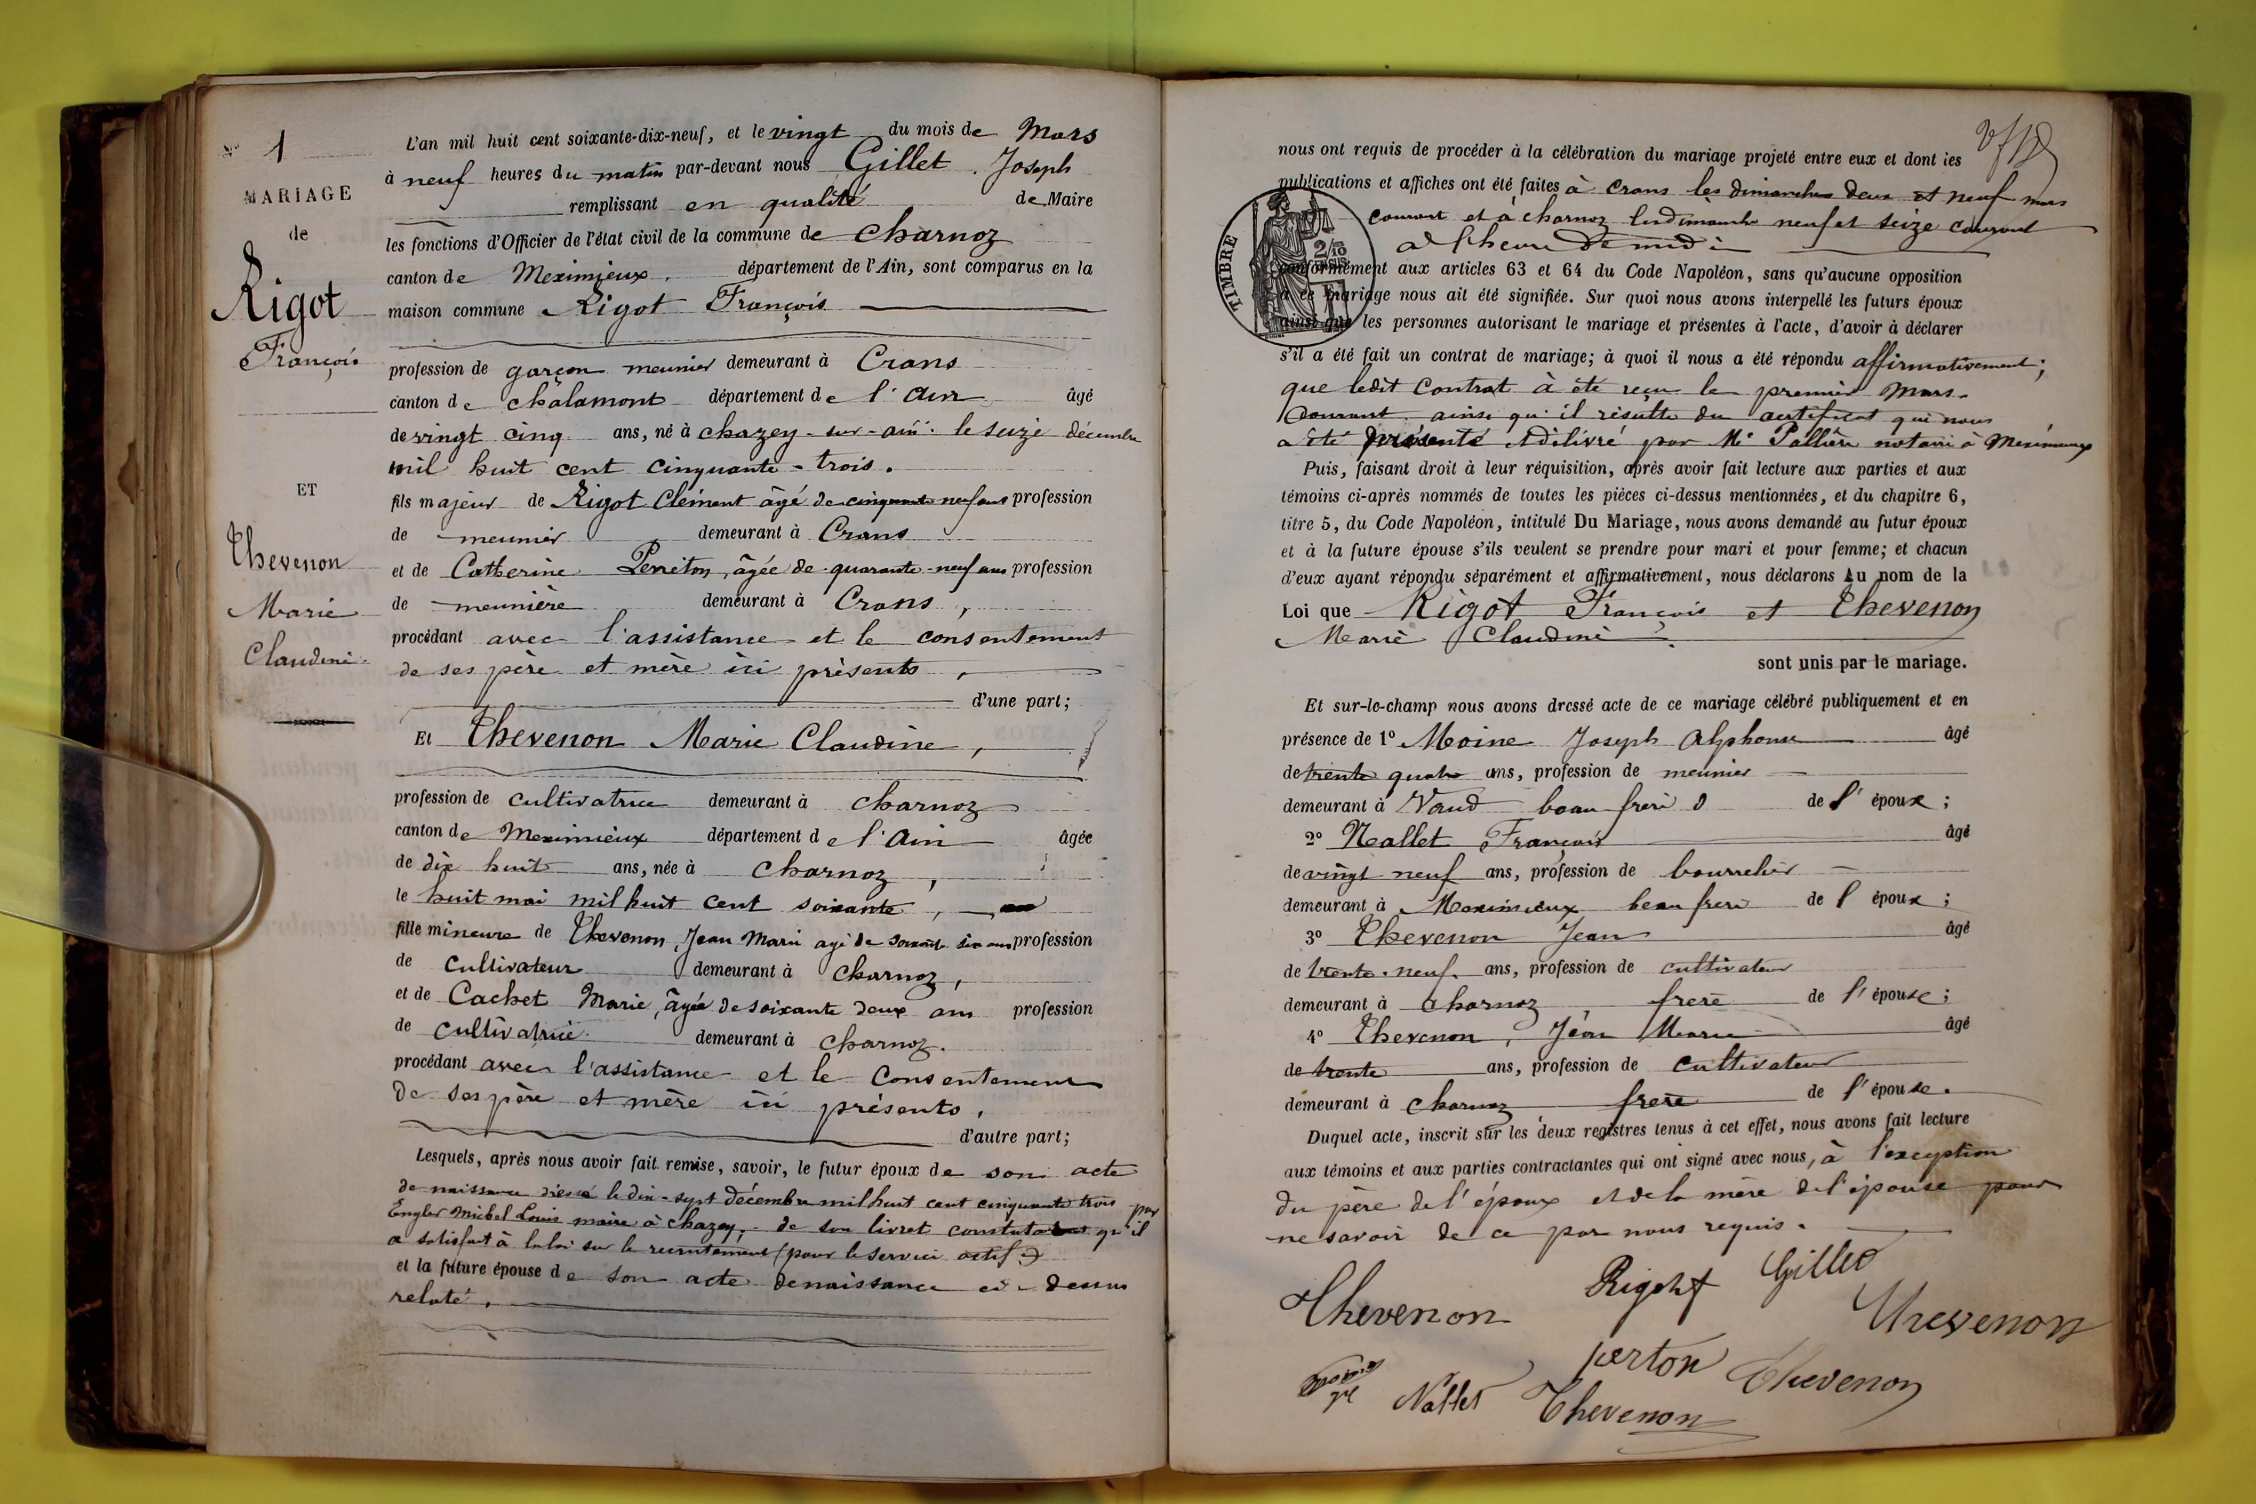 N° 1
MARIAGE
de
Rigot
François
ET
Thevenon
Marie
Claudine
L'an mil huit cent soixante-dix-neuf, et le vingt du mois de Mars
à neuf heures du matin par-devant nous Gillet Joseph
remplissant en qualité de Maire
les fonctions d'Officier de l'état civil de la commune de Charnoz
canton de Meximieux. département de l'Ain, sont comparus en la
maison commune Rigot François
profession de garçon meunier demeurant à Crans
canton de Chalamont département de l'Ain âgé
de vingt cinq ans, né à Chazey-sur-ain le seize décembre
mil huit cent cinquante-trois.
fils majeur de Rigot Clément âgé de cinquante neuf ans profession
de meunier demeurant à Crans
et de Catherine Perreton, âgée de quarante-neuf ans profession
de meunière demeurant à Crans,
procédant avec l'assistance et le consentement
de ses père et mère ici présents,
d'une part;
Et Thevenon Marie Claudine,
profession de cultivatrice demeurant à Charnoz
canton de Meximieux département de l'Ain âgée
de dix huit ans, née à Charnoz,
le huit mai mil huit cent soixante,
fille mineure de Thevenon Jean Marie agé de soixante six ans profession
de cultivateur demeurant à Charnoz,
et de Cachet Marie, âgée de soixante deux ans profession
de cultivatrice demeurant à Charnoz.
procédant avec l'assistance et le consentement
de ses père et mère ici présents,
d'autre part;
Lesquels, après nous avoir fait remise, savoir, le futur époux de son acte
de naissance dressé le dix-sept décembre mil huit cent cinquante trois par
Engler Michel Louis maire à Chazey, de son livret constatant qu'il
a satisfait à la loi sur le recrutement (pour le service actif)
et la future épouse de son acte de naissance ci-dessus
relaté.
nous ont requis de procéder à la célébration du mariage projeté entre eux et dont les
publications et affiches ont été faites à Crans les dimanches deux et neuf mars
courant et à Charnoz les dimanche neuf et seize courant
à l'heure de midi
TIMBRE
2/10
EN SUS
conformément aux articles 63 et 64 du Code Napoléon, sans qu'aucune opposition
à ce mariage nous ait été signifiée. Sur quoi nous avons interpellé les futurs époux
ainsi que les personnes autorisant le mariage et présentes à l'acte, d'avoir à déclarer
s'il a été fait un contrat de mariage; à quoi il nous a été répondu affirmativement;
que ledit contrat à été reçu le premier mars
courant ainsi qu'il résulte du certificat qui nous
a été présenté et délivré par Me Pallière notaire à Meximieux
Puis, faisant droit à leur réquisition, après avoir fait lecture aux parties et aux
témoins ci-après nommés de toutes les pièces ci-dessus mentionnées, et du chapitre 6,
titre 5, du Code Napoléon, intitulé Du Mariage, nous avons demandé au futur époux
et à la future épouse s'ils veulent se prendre pour mari et pour femme; et chacun
d'eux ayant répondu séparément et affirmativement, nous déclarons Au nom de la
Loi que Rigot François et Thevenon
Marie Claudine
sont unis par le mariage.
Et sur-le-champ nous avons dressé acte de ce mariage célébré publiquement et en
présence de 1° Moine Joseph Alphonse âgé
de trente quatre ans, profession de meunier
demeurant à beau frère de l'époux;
2° Nallet François âgé
de vingt neuf ans, profession de bourrelier
demeurant à Meximieux beau frère de l'époux;
3° Thevenon Jean âgé
de trente-neuf ans, profession de cultivateur
demeurant à Charnoz frère de l'épouse;
4° Thevenon, Jean Marie âgé
de trente ans, profession de cultivateur
demeurant à Charnoz frère de l'épouse.
Duquel acte, inscrit sur les deux registres tenus à cet effet, nous avons fait lecture
aux témoins et aux parties contractantes qui ont signé avec nous, à l'exception
du père de l'époux et de la mère de l'épouse pour
ne savoir de ce par nous requis.
Thevenon Rigot f Gillet
Thevenon
perton Thevenon
Nallet Thevenon